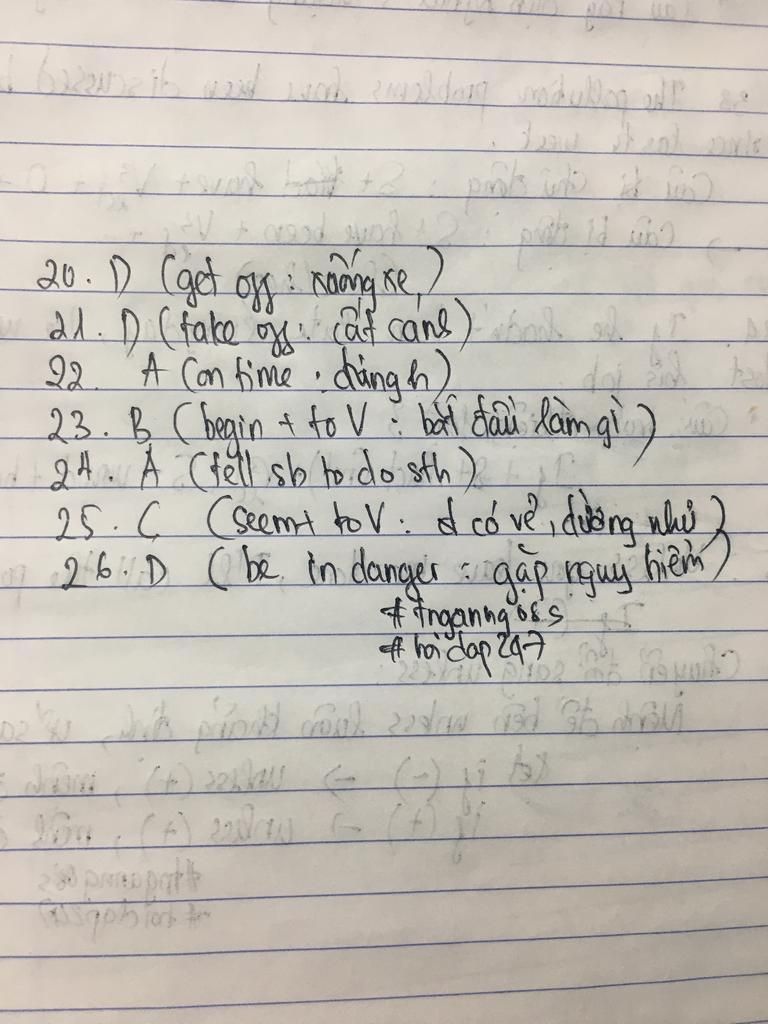 20. D (get off : xuống xe)
21. D (take off : cất cánh)
22. A (on time : đúng h)
23. B (begin + to V : bắt đầu làm gì)
24. A (tell sb to do sth)
25. C (seem + to V : có vẻ, dường như)
26. D (be in danger : gặp nguy hiểm)
#hoidap247